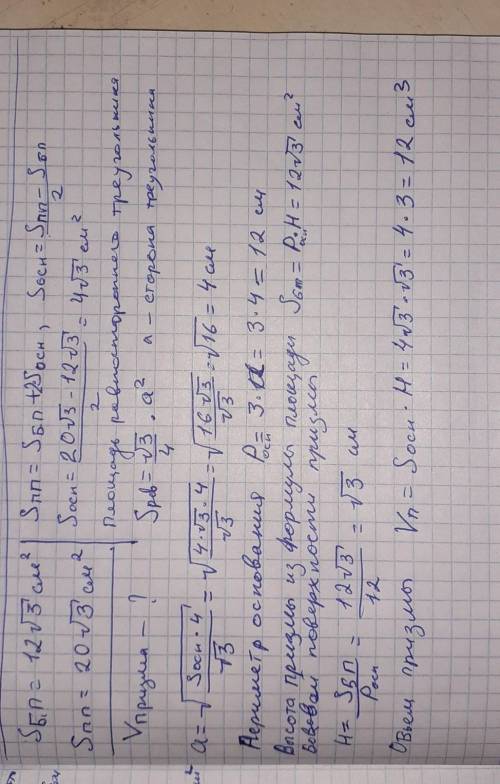 Sбп = 12√3 см² | Sпп = Sбп + 2Sосн, Sосн = (Sпп − Sбп)/2
Sпп = 20√3 см² | Sосн = (20√3 − 12√3)/2 = 4√3 см²
Vпризма – ? | Площадь равностороннего треугольника
Sрав = √3/4 · a² a – сторона треугольника
a = √(Sосн · 4/√3) = √(4·√3·4/√3) = √(16√3/√3) = √16 = 4 см
Периметр основания Pосн = 3·a = 3·4 = 12 см
Высота призмы из формулы площади
боковой поверхности призмы Sбп = Pосн·H = 12√3 см²
H = Sбп/Pосн = 12√3/12 = √3 см
Объем призмы Vп = Sосн · H = 4√3·√3 = 4·3 = 12 см3